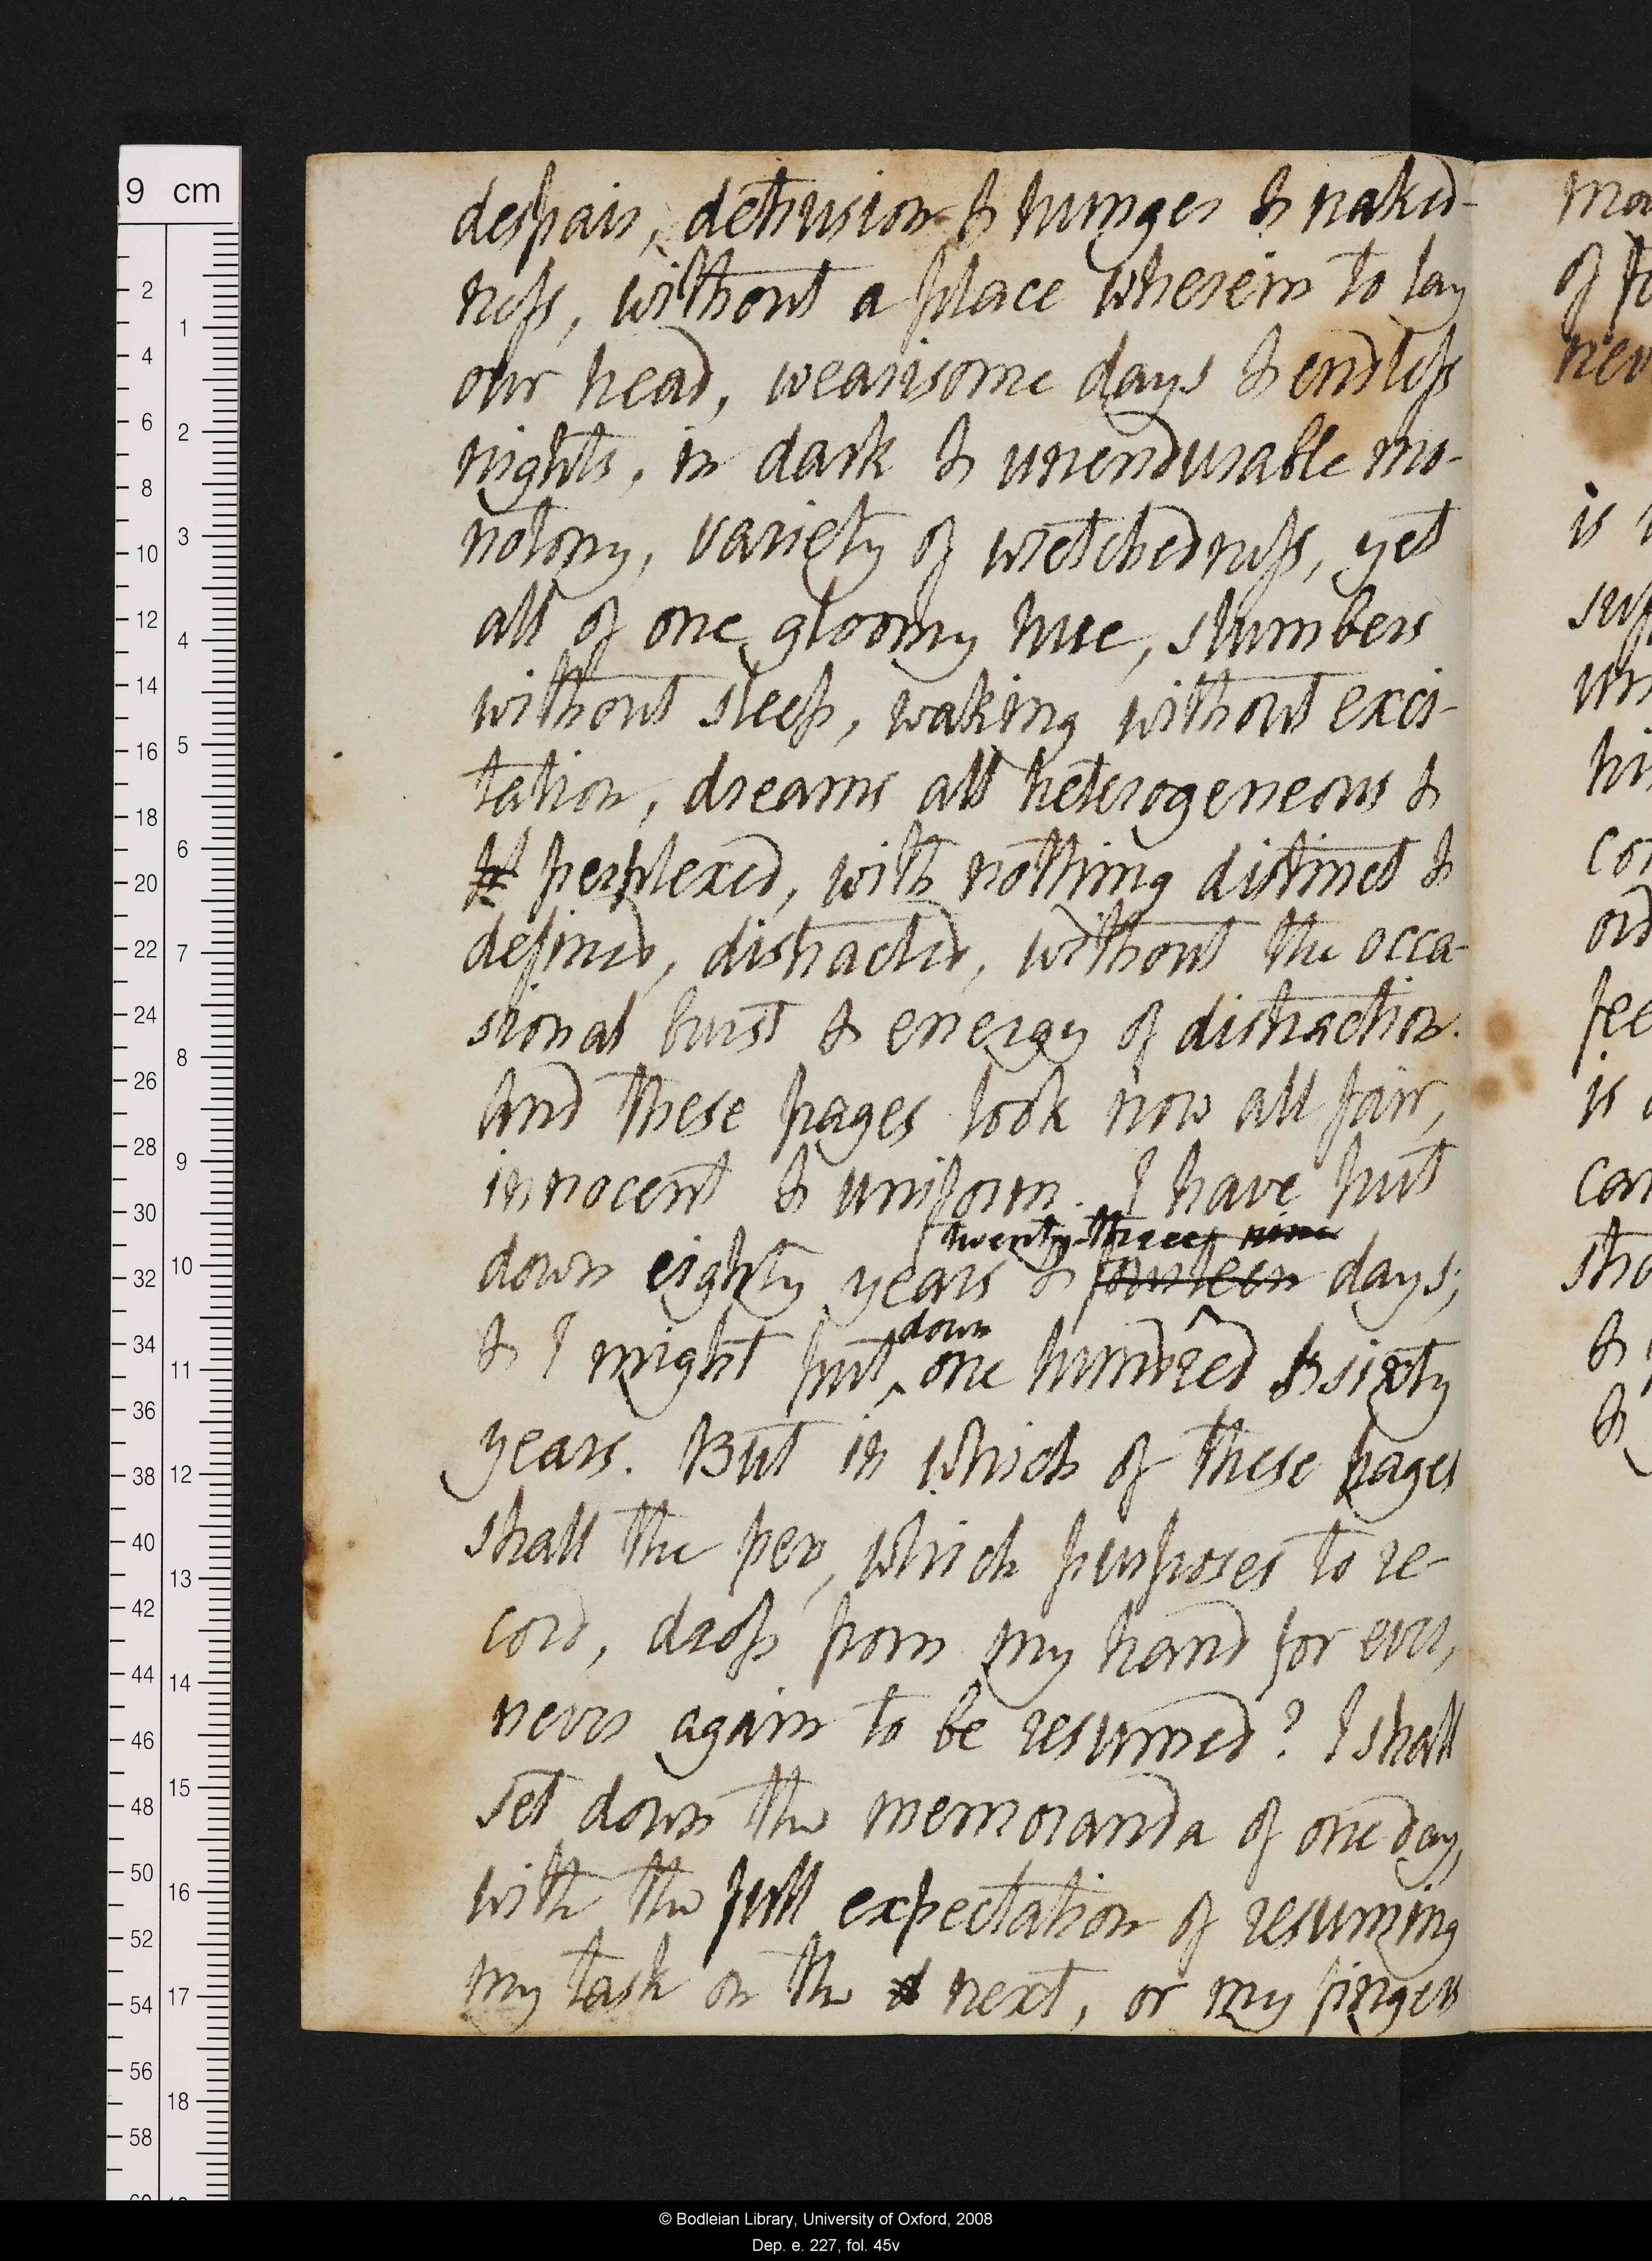 despair, detrusion & hunger & naked-
ness, without a place wherein to lay
our head, wearisome days & endless
nights, in dark & unendurable mo-
notony, variety of wretchedness, yet
all of one gloomy hue, slumbers
without sleep, waking without exci-
tation, dreams all heterogeneous &
perplexed, with nothing distinct &
defined, distracted, without the occa-
sional burst & energy of distraction.
And these pages look now all fair,
innocent & uniform. I have put
twenty-three nine
down eighty years & fourteen days;
down
& I might put one hundred & sixty
years. But in which of these pages
shall the pen, which purposes to re-
cord, drop from my hand for ever,
never again to be resumed? I shall
set down the memoranda of one day,
with the full expectation of resuming
my task on the next, or my fingers
mo
of fo
nev
is
suf
un
hi
co
ord
fee
is
can
sho
&
&
9 cm
2
4
6
8
10
12
14
16
18
20
22
24
26
28
30
32
34
36
38
40
42
44
46
48
50
52
54
56
58
1
2
3
4
5
6
7
8
9
10
11
12
13
14
15
16
17
18
© Bodleian Library, University of Oxford, 2008
Dep. e. 227, fol. 45v